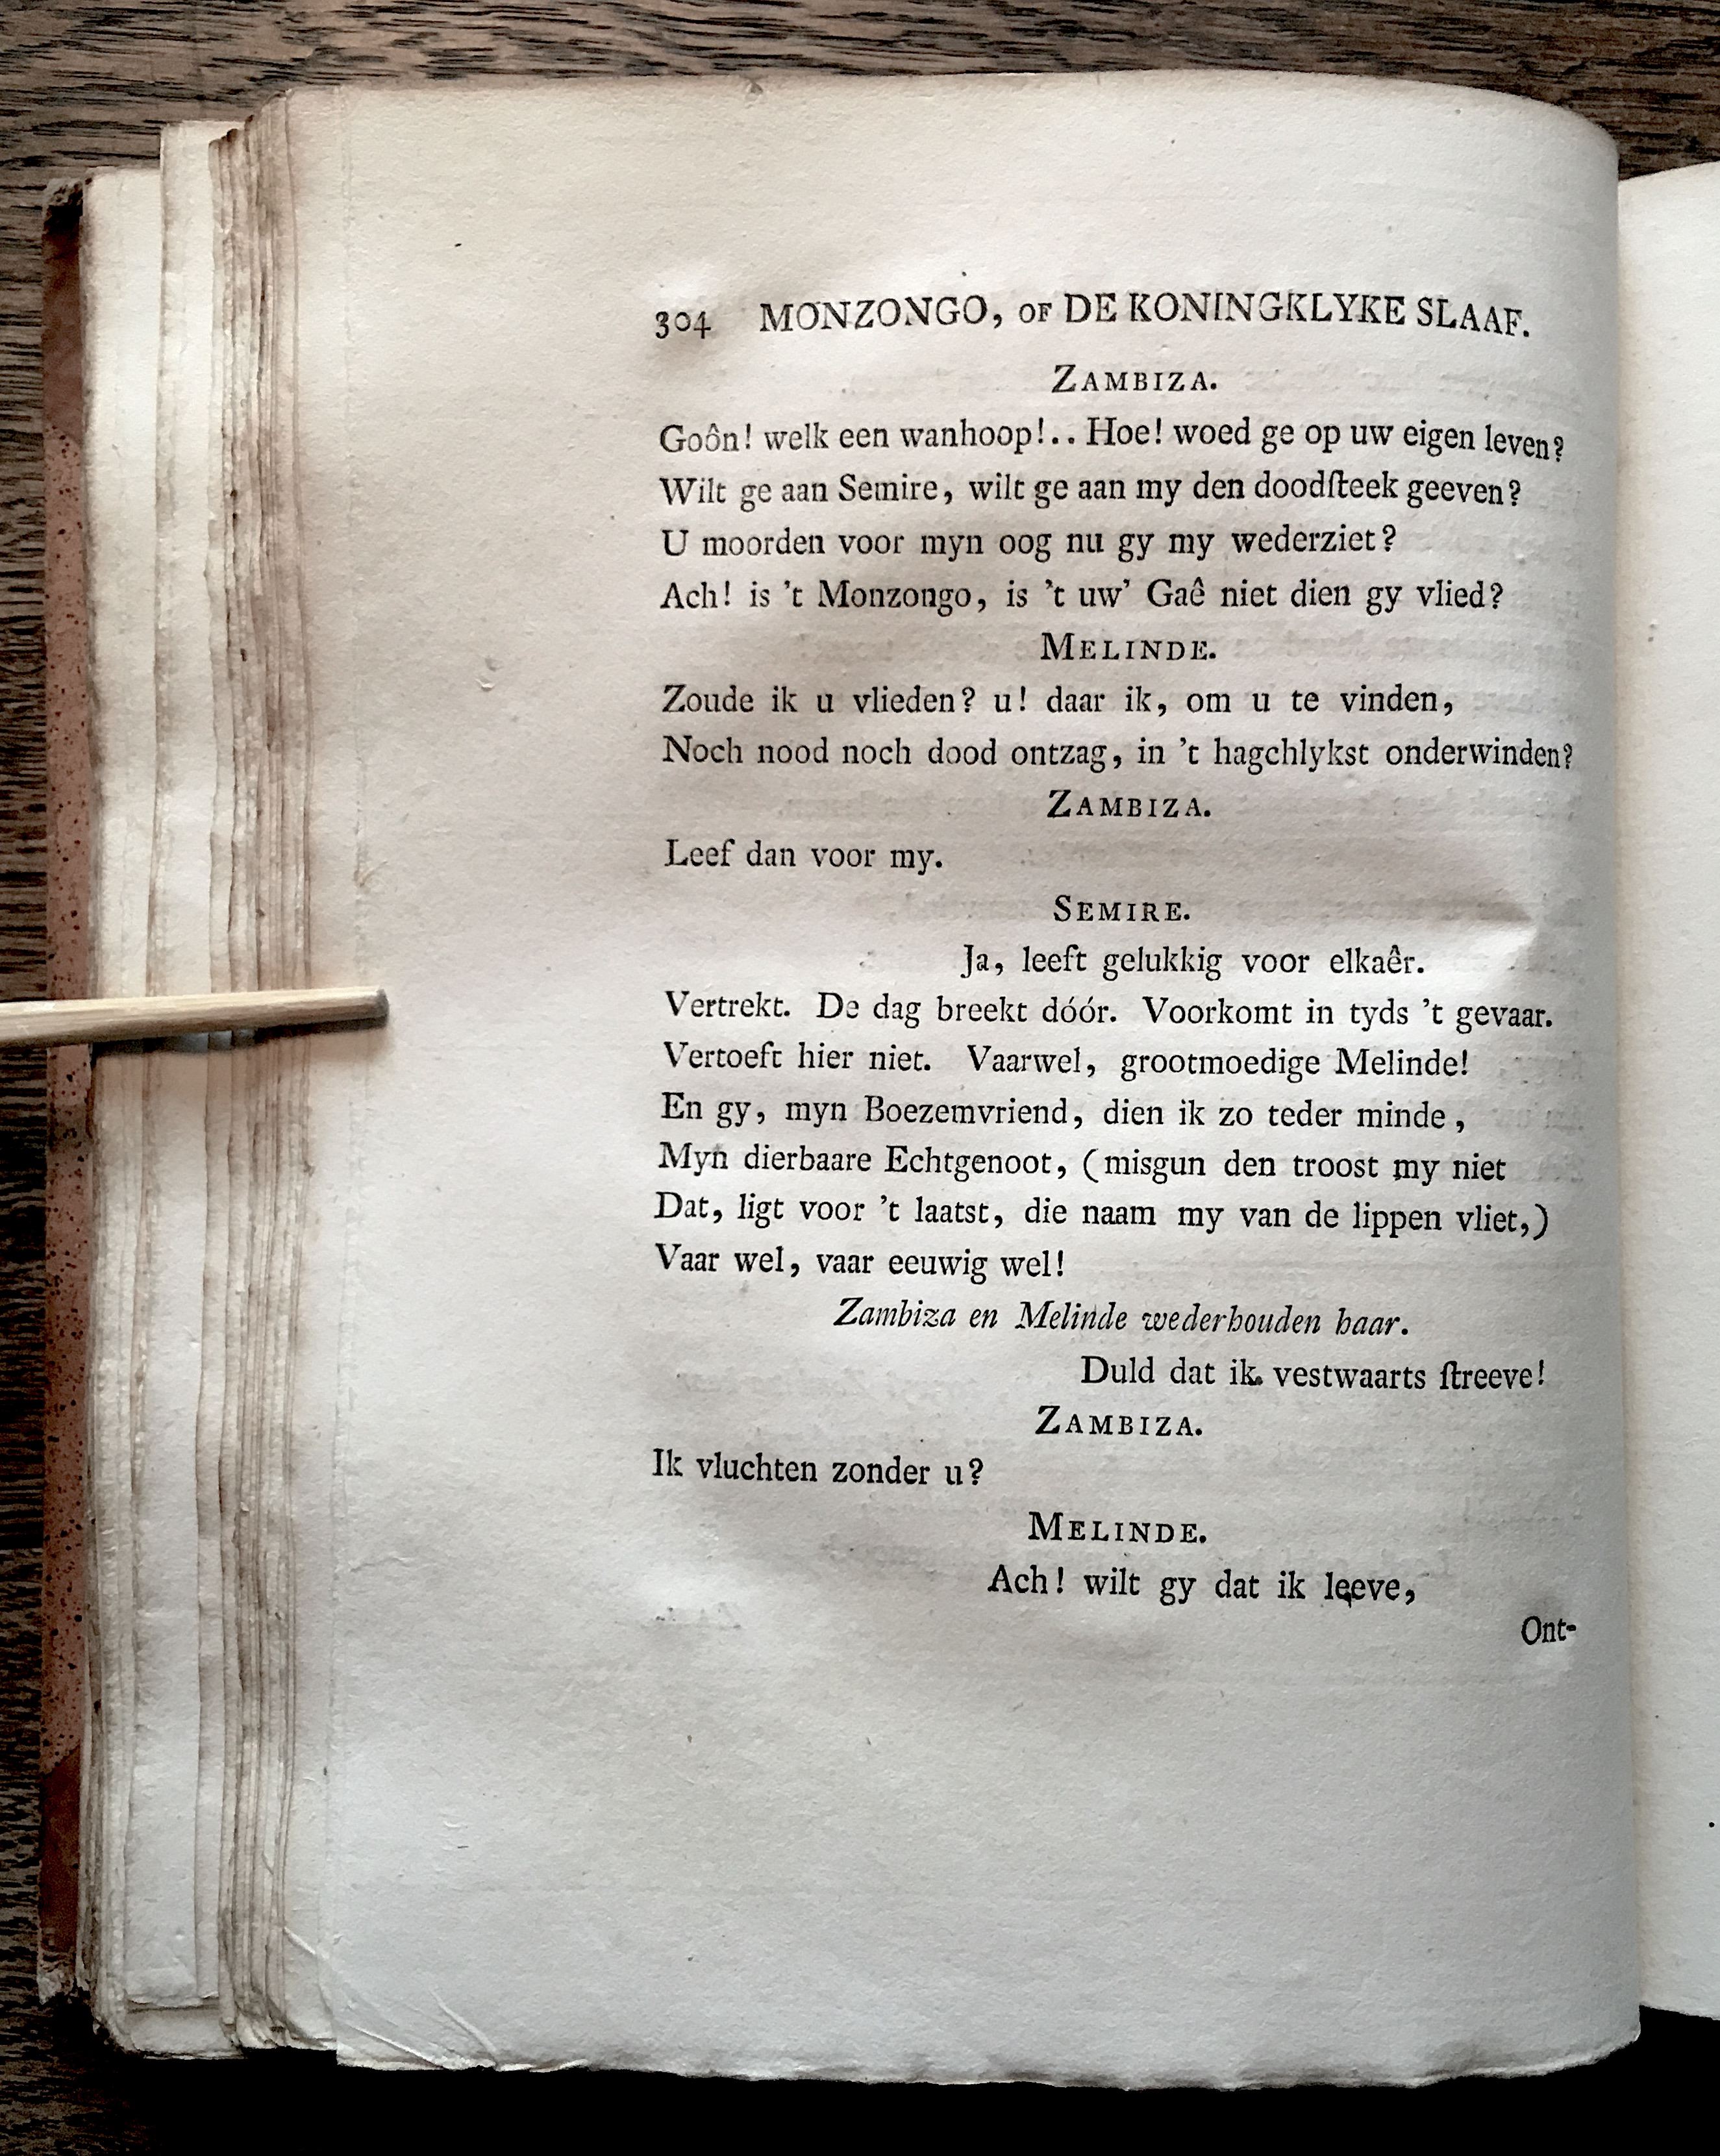 304 MONZONGO, OF DE KONINGKLYKE SLAAF.
ZAMBIZA.
Goôn! welk een wanhoop!.. Hoe! woed ge op uw eigen leven?
Wilt ge aan Semire, wilt ge aan my den doodſteek geeven?
U moorden voor myn oog nu gy my wederziet?
Ach! is 't Monzongo, is 't uw' Gaê niet dien gy vlied?
MELINDE.
Zoude ik u vlieden? u! daar ik, om u te vinden,
Noch nood noch dood ontzag, in 't hagchlykst onderwinden?
ZAMBIZA.
Leef dan voor my.
SEMIRE.
Ja, leeft gelukkig voor elkaêr.
Vertrekt. De dag breekt dóór. Voorkomt in tyds 't gevaar.
Vertoeft hier niet. Vaarwel, grootmoedige Melinde!
En gy, myn Boezemvriend, dien ik zo teder minde,
Myn dierbaare Echtgenoot, (misgun den troost my niet
Dat, ligt voor 't laatst, die naam my van de lippen vliet,)
Vaar wel, vaar eeuwig wel!
Zambiza en Melinde wederhouden haar.
Duld dat ik vestwaarts ſtreeve!
ZAMBIZA.
Ik vluchten zonder u?
MELINDE.
Ach! wilt gy dat ik leeve,
Ont-